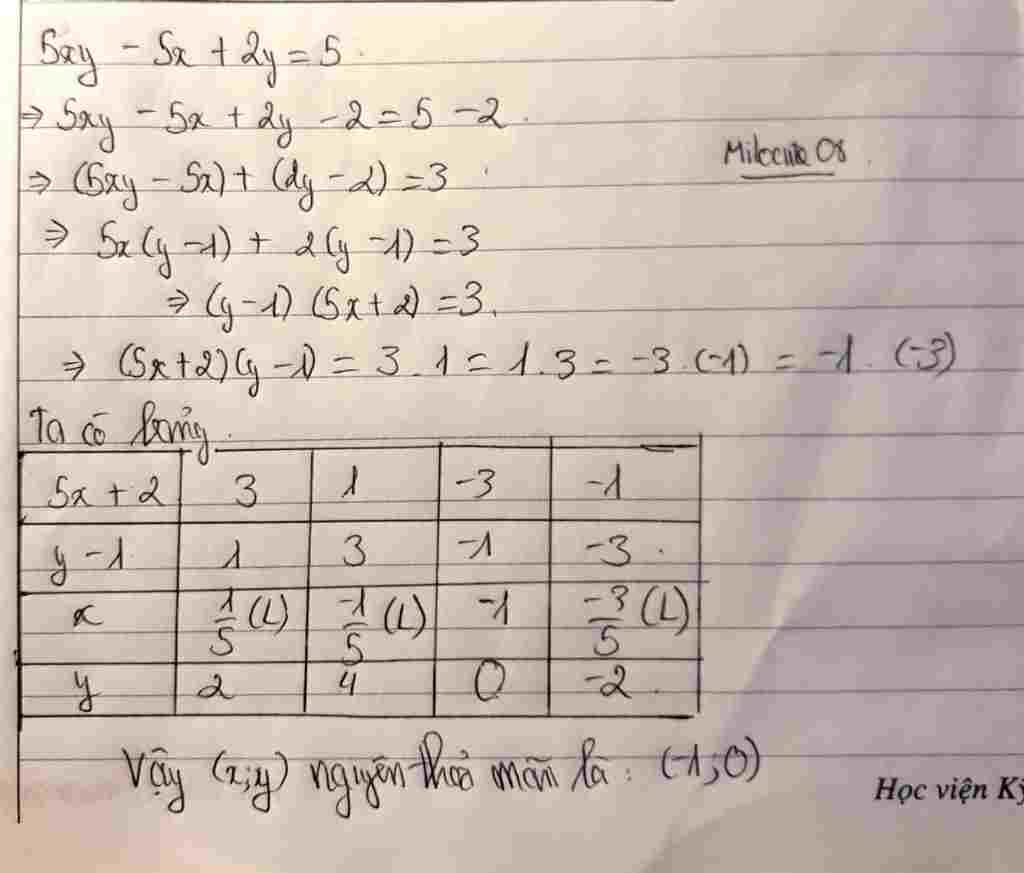 5xy - 5x + 2y = 5
⇒ 5xy - 5x + 2y - 2 = 5 - 2
⇒ (5xy - 5x) + (2y - 2) = 3
⇒ 5x(y - 1) + 2(y - 1) = 3
⇒ (y - 1) (5x + 2) = 3.
⇒ (5x + 2)(y - 1) = 3 . 1 = 1 . 3 = -3 . (-1) = -1 . (-3)
Ta có bảng.
5x + 2 3 1 -3 -1
y - 1 1 3 -1 -3
x 1/5 (L) -1/5 (L) -1 -3/5 (L)
y 2 4 0 -2
Vậy (x;y) nguyên thoả mãn là : (-1;0)
Học viện Kỹ